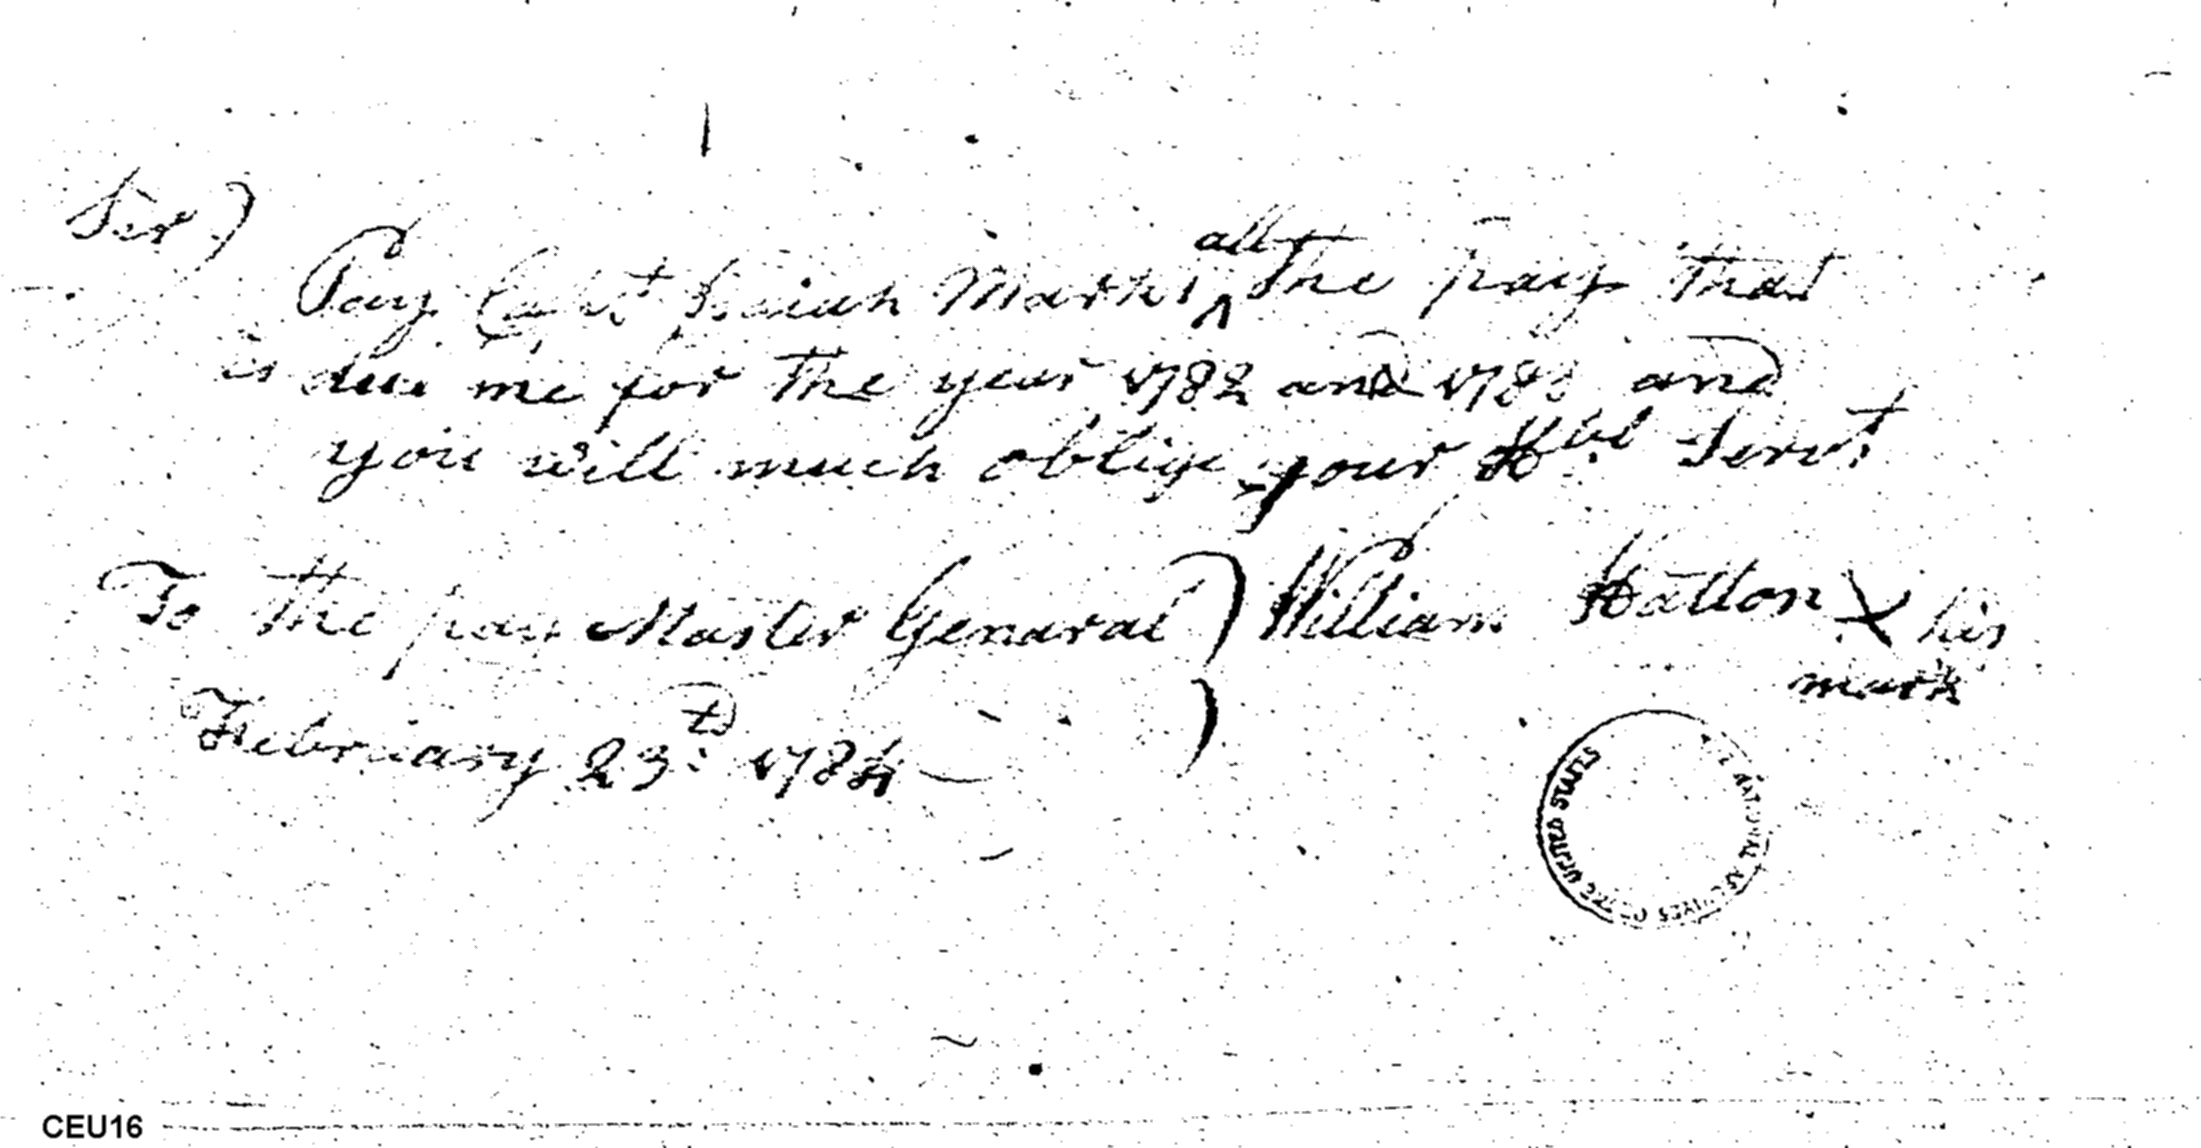 Sir)
Pay Capt Isaiah Marks ^all The pay that
is due me for The year 1782 and 1783 and
you will much oblige your Hbl Servt
To the pay Master General ) William Hatton X his
mark
February 23d: 1784 — )
THE NATIONAL ARCHIVES OF THE UNITED STATES
CEU16